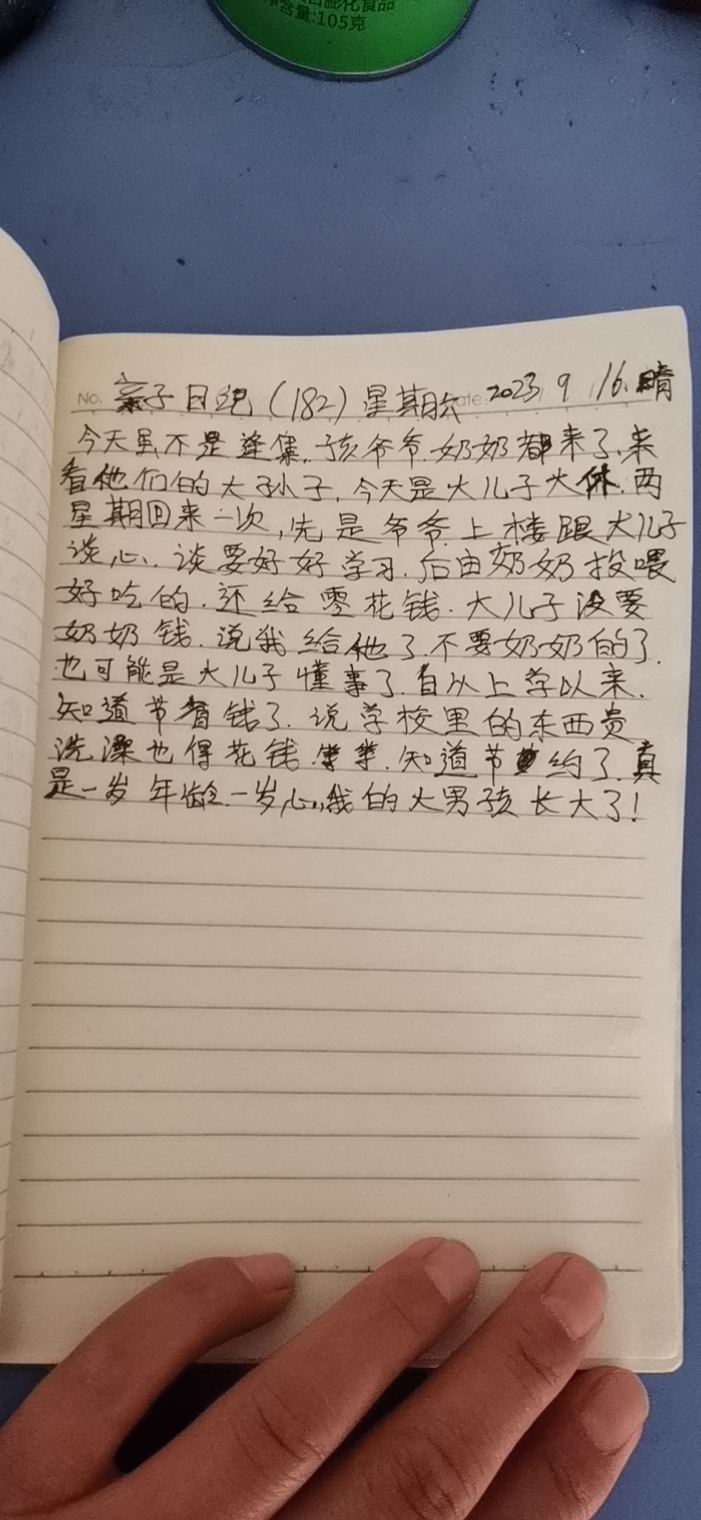 膨化食品
净含量:105克
No. 亲子日记(182)星期六 Date: 2023 9 16. 晴
今天虽不是逢集.孩爷爷.奶奶都来了.来
看他们的大孙子.今天是大儿子大休.两
星期回来一次,先是爷爷上楼跟大儿子
谈心.谈要好好学习.后由奶奶投喂
好吃的.还给零花钱.大儿子没要
奶奶钱.说我给他了.不要奶奶的了.
也可能是大儿子懂事了.自从上学以来.
知道节省钱了.说学校里的东西贵
洗澡也得花钱.等等.知道节约了.真
是一岁年龄.一岁心,我的大男孩长大了!